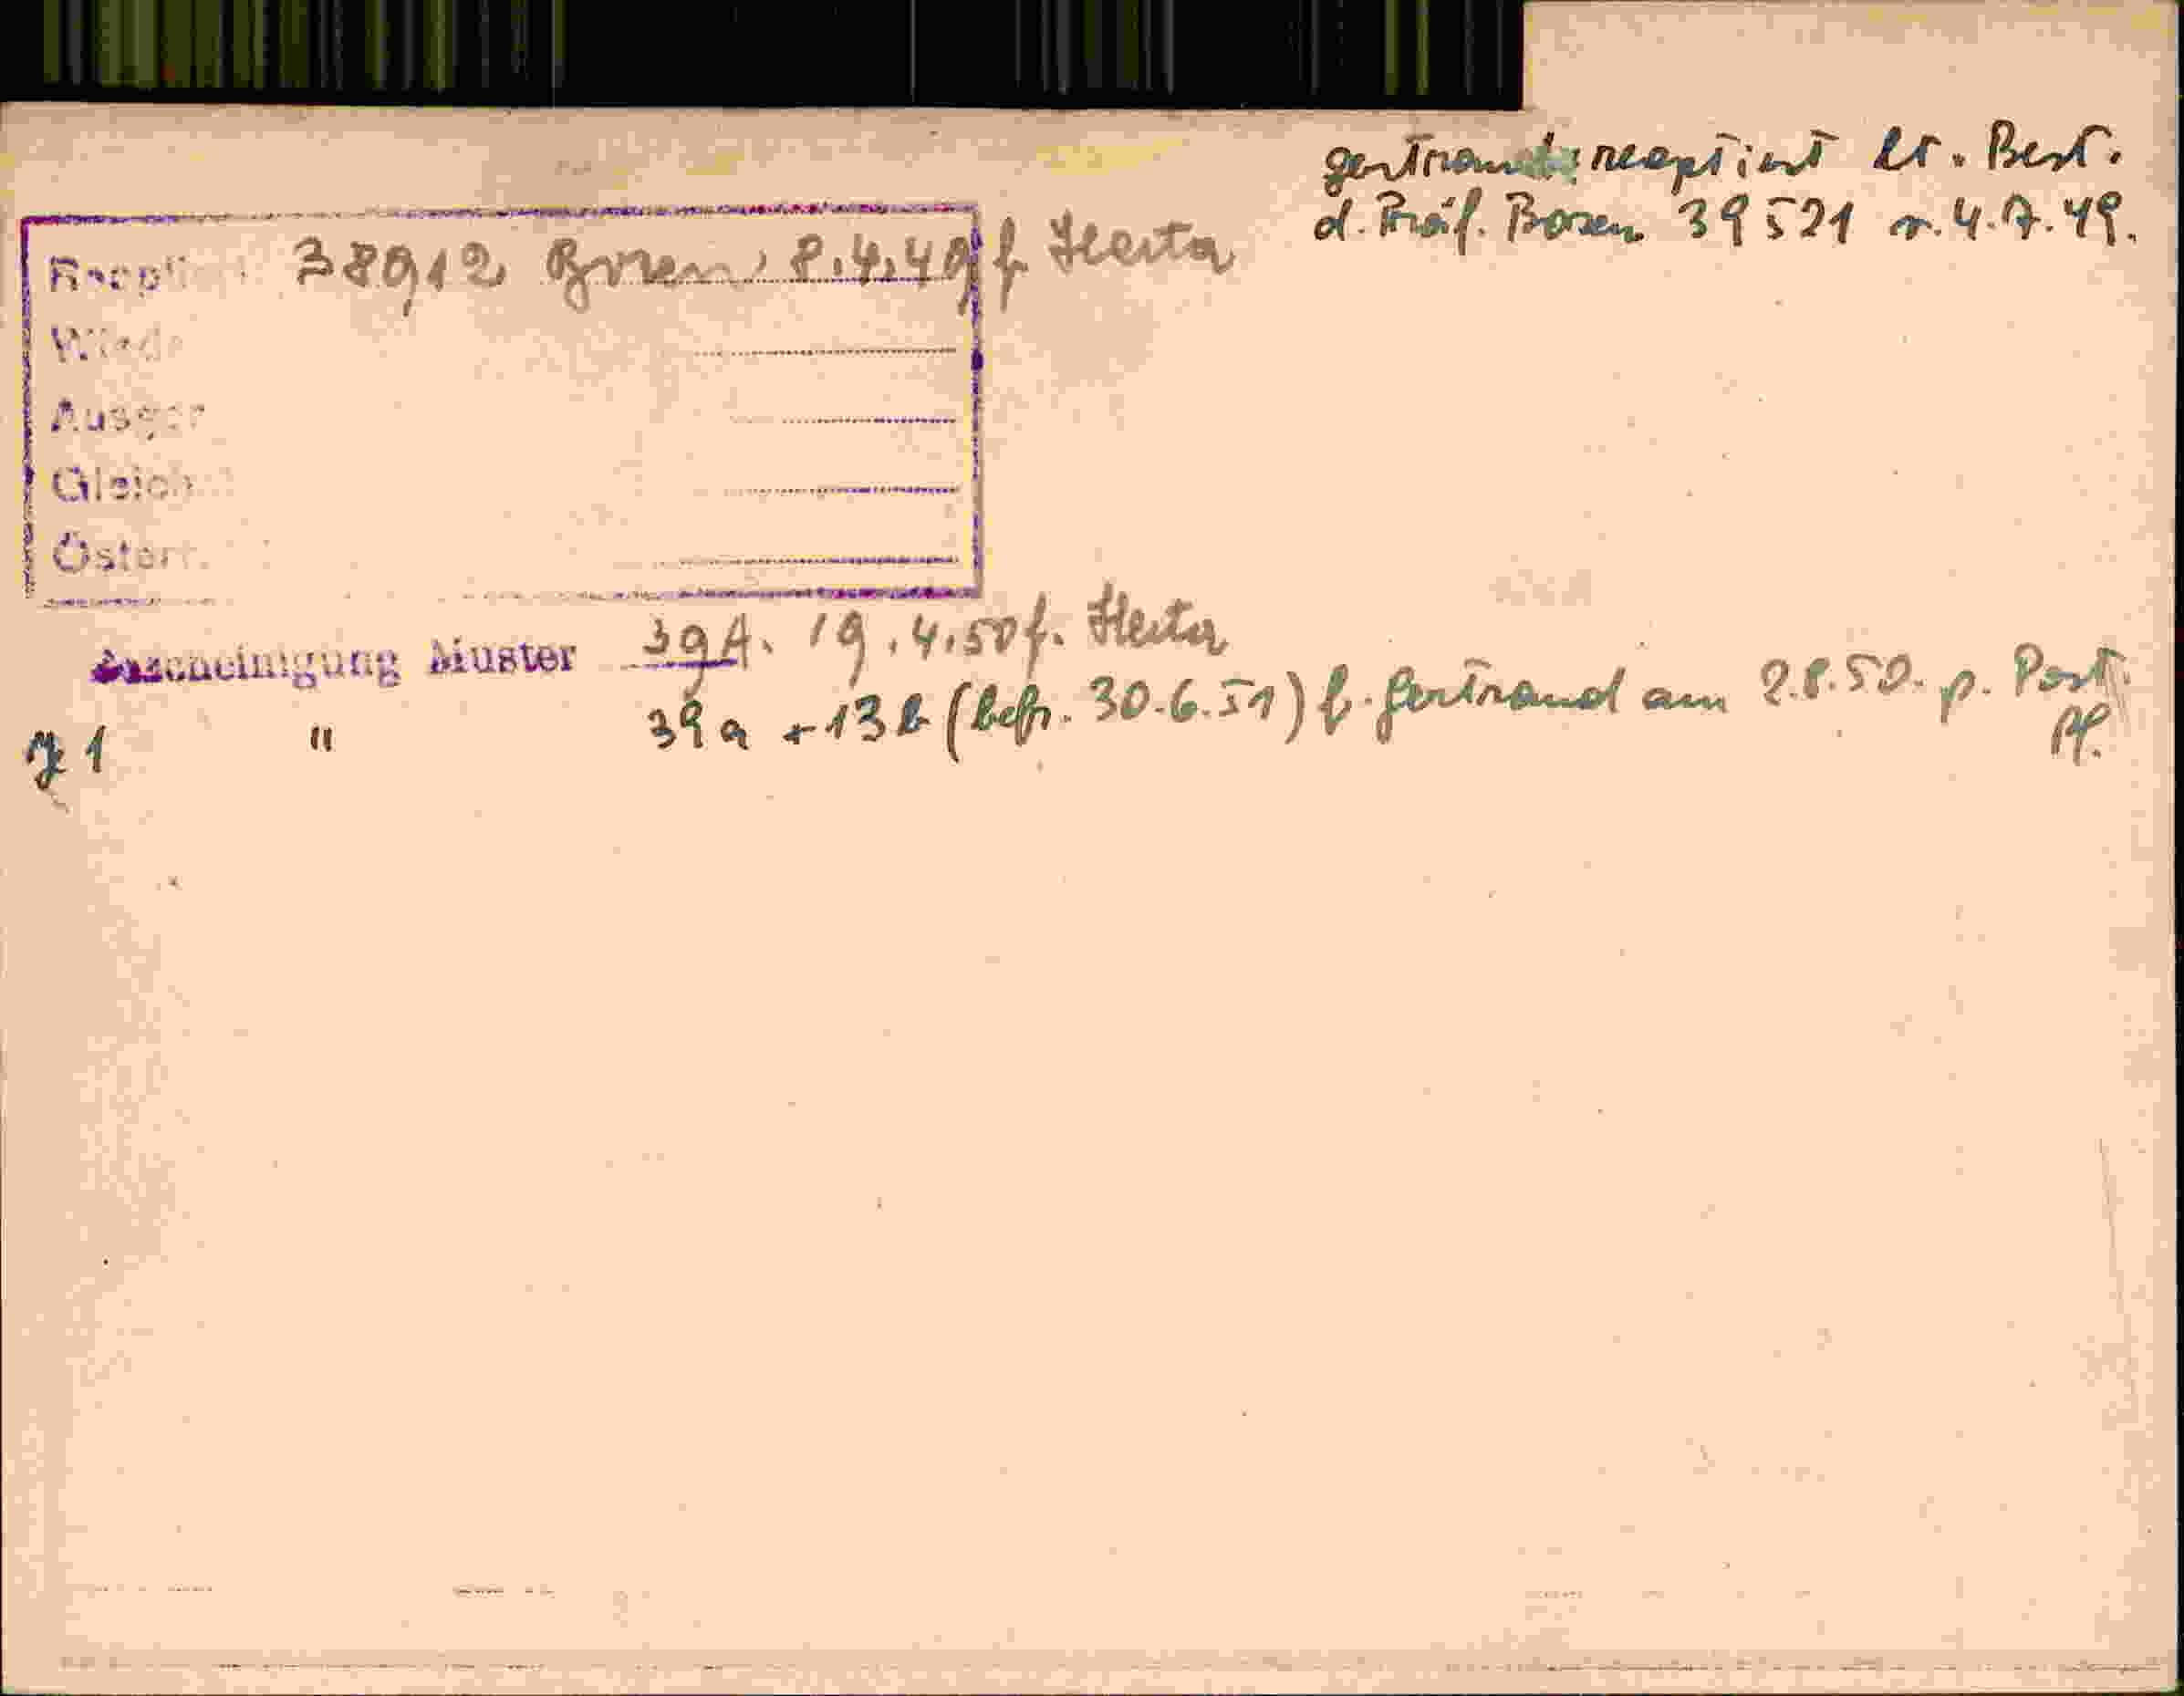 gertraud reoptiert lt. Best.
d. Präf. Bozen 39521 v. 4.7.49.
Reopti 38912 Bozen, 8.4.49 f. Herta
Wiede
Ausger
Gleich
Österr.
Bescheinigung Muster 39A. 19.4.50 f. Herta
1 " 39a + 13b (befr. 30.6.51) f. Gertraud am 2.8.50. p. Post.
Pf.